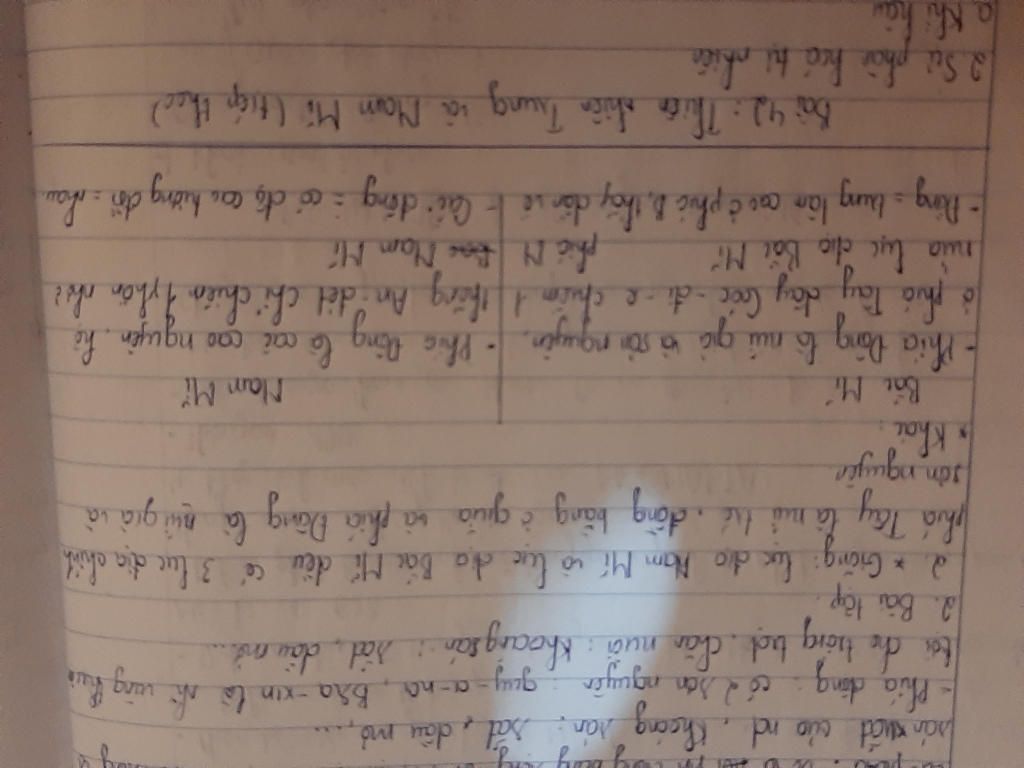 sản xuất của nd. Khoáng sản: sắt, dầu mỏ, ...
- Phía đông: có 2 sơn nguyên: guy-a-na, Bra-xin là vùng
lợi cho trồng trọt, chăn nuôi; khoáng sản: sắt, dầu mỏ...
2. Bài tập.
2. * Giống: lục địa Nam Mĩ và lục địa Bắc Mĩ đều có 3 lục địa chính
phía Tây là núi trẻ, đồng bằng ở giữa và phía Đông là núi già và
sơn nguyên
* Khác:
Bắc Mĩ Nam Mĩ
- Phía Đông là núi già và sơn nguyên. - Phía Đông là các cao nguyên, hệ
ở phía Tây dãy Cooc-di-e chiếm 1 thống An-đét chỉ chiếm 1 phần nhỏ
nửa lục địa Bắc Mĩ phía N Nam Mĩ
- Đồng = trung tâm cao ở phía B, thấp dần về - Các đồng = có độ cao tương đối = nhau
Bài 42: Thiên nhiên Trung và Nam Mĩ (tiếp theo)
2. Sự phân hoá tự nhiên
a. Khí hậu